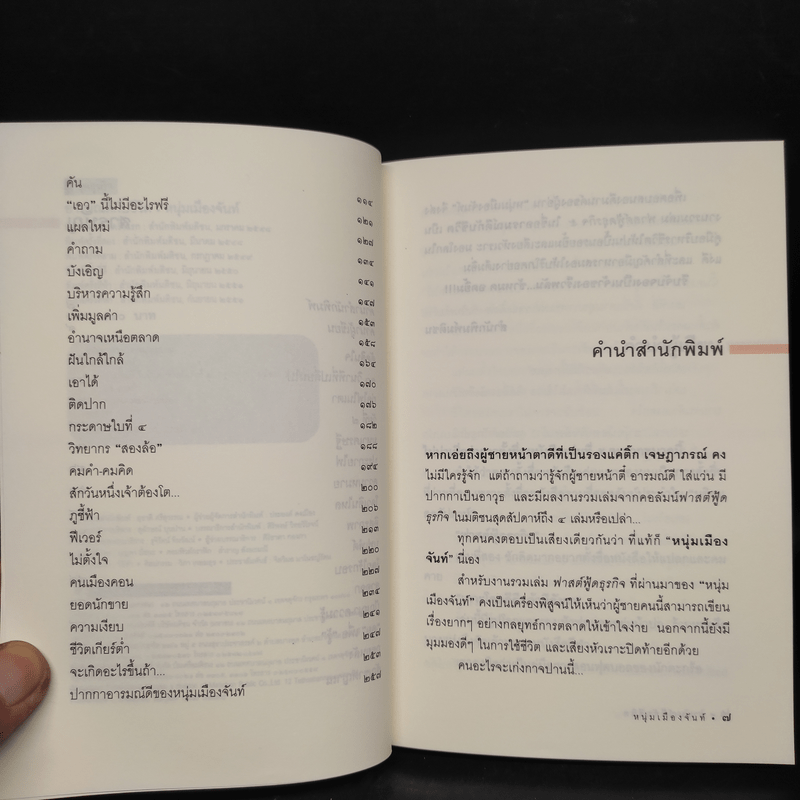 คัน ๑๑๔
“เอว” นี้ไม่มีอะไรฟรี ๑๒๑
แผลใหม่ ๑๒๘
คำถาม ๑๓๔
บังเอิญ ๑๔๑
บริหารความรู้สึก ๑๔๗
เพิ่มมูลค่า ๑๕๓
อำนาจเหนือตลาด ๑๕๘
ฝันใกล้ใกล้ ๑๖๔
เอาได้ ๑๗๐
ติดปาก ๑๗๖
กระดาษใบที่ ๔ ๑๘๒
วิทยากร “สองล้อ” ๑๘๘
คมคำ-คมคิด ๑๙๔
สักวันหนึ่งเจ้าต้องโต... ๒๐๐
ภูชี้ฟ้า ๒๐๖
ฟีเวอร์ ๒๑๓
ไม่ตั้งใจ ๒๒๐
คนเมืองคอน ๒๒๗
ยอดนักขาย ๒๓๔
ความเงียบ ๒๔๑
ชีวิตเกียร์ต่ำ ๒๔๗
จะเกิดอะไรขึ้นถ้า... ๒๕๓
ปากกาอารมณ์ดีของหนุ่มเมืองจันท์ ๒๕๗
คำนำสำนักพิมพ์
หากเอ่ยถึงผู้ชายหน้าตาดีที่เป็นรองแค่ติ๊ก เจษฎาภรณ์ คง
ไม่มีใครรู้จัก แต่ถ้าถามว่ารู้จักผู้ชายหน้าตี๋ อารมณ์ดี ใส่แว่น มี
ปากกาเป็นอาวุธ และมีผลงานรวมเล่มจากคอลัมน์ฟาสต์ฟู้ด
ธุรกิจ ในมติชนสุดสัปดาห์ถึง ๔ เล่มหรือเปล่า...
ทุกคนคงตอบเป็นเสียงเดียวกันว่า ที่แท้ก็ “หนุ่มเมือง
จันท์” นี่เอง
สำหรับงานรวมเล่ม ฟาสต์ฟู้ดธุรกิจ ที่ผ่านมาของ “หนุ่ม
เมืองจันท์” คงเป็นเครื่องพิสูจน์ให้เห็นว่าผู้ชายคนนี้สามารถเขียน
เรื่องยากๆ อย่างกลยุทธ์การตลาดให้เข้าใจง่าย นอกจากนี้ยังมี
มุมมองดีๆ ในการใช้ชีวิต และเสียงหัวเราะปิดท้ายอีกด้วย
คนอะไรจะเก่งกาจปานนี้...
หนุ่มเมืองจันท์ • ๗